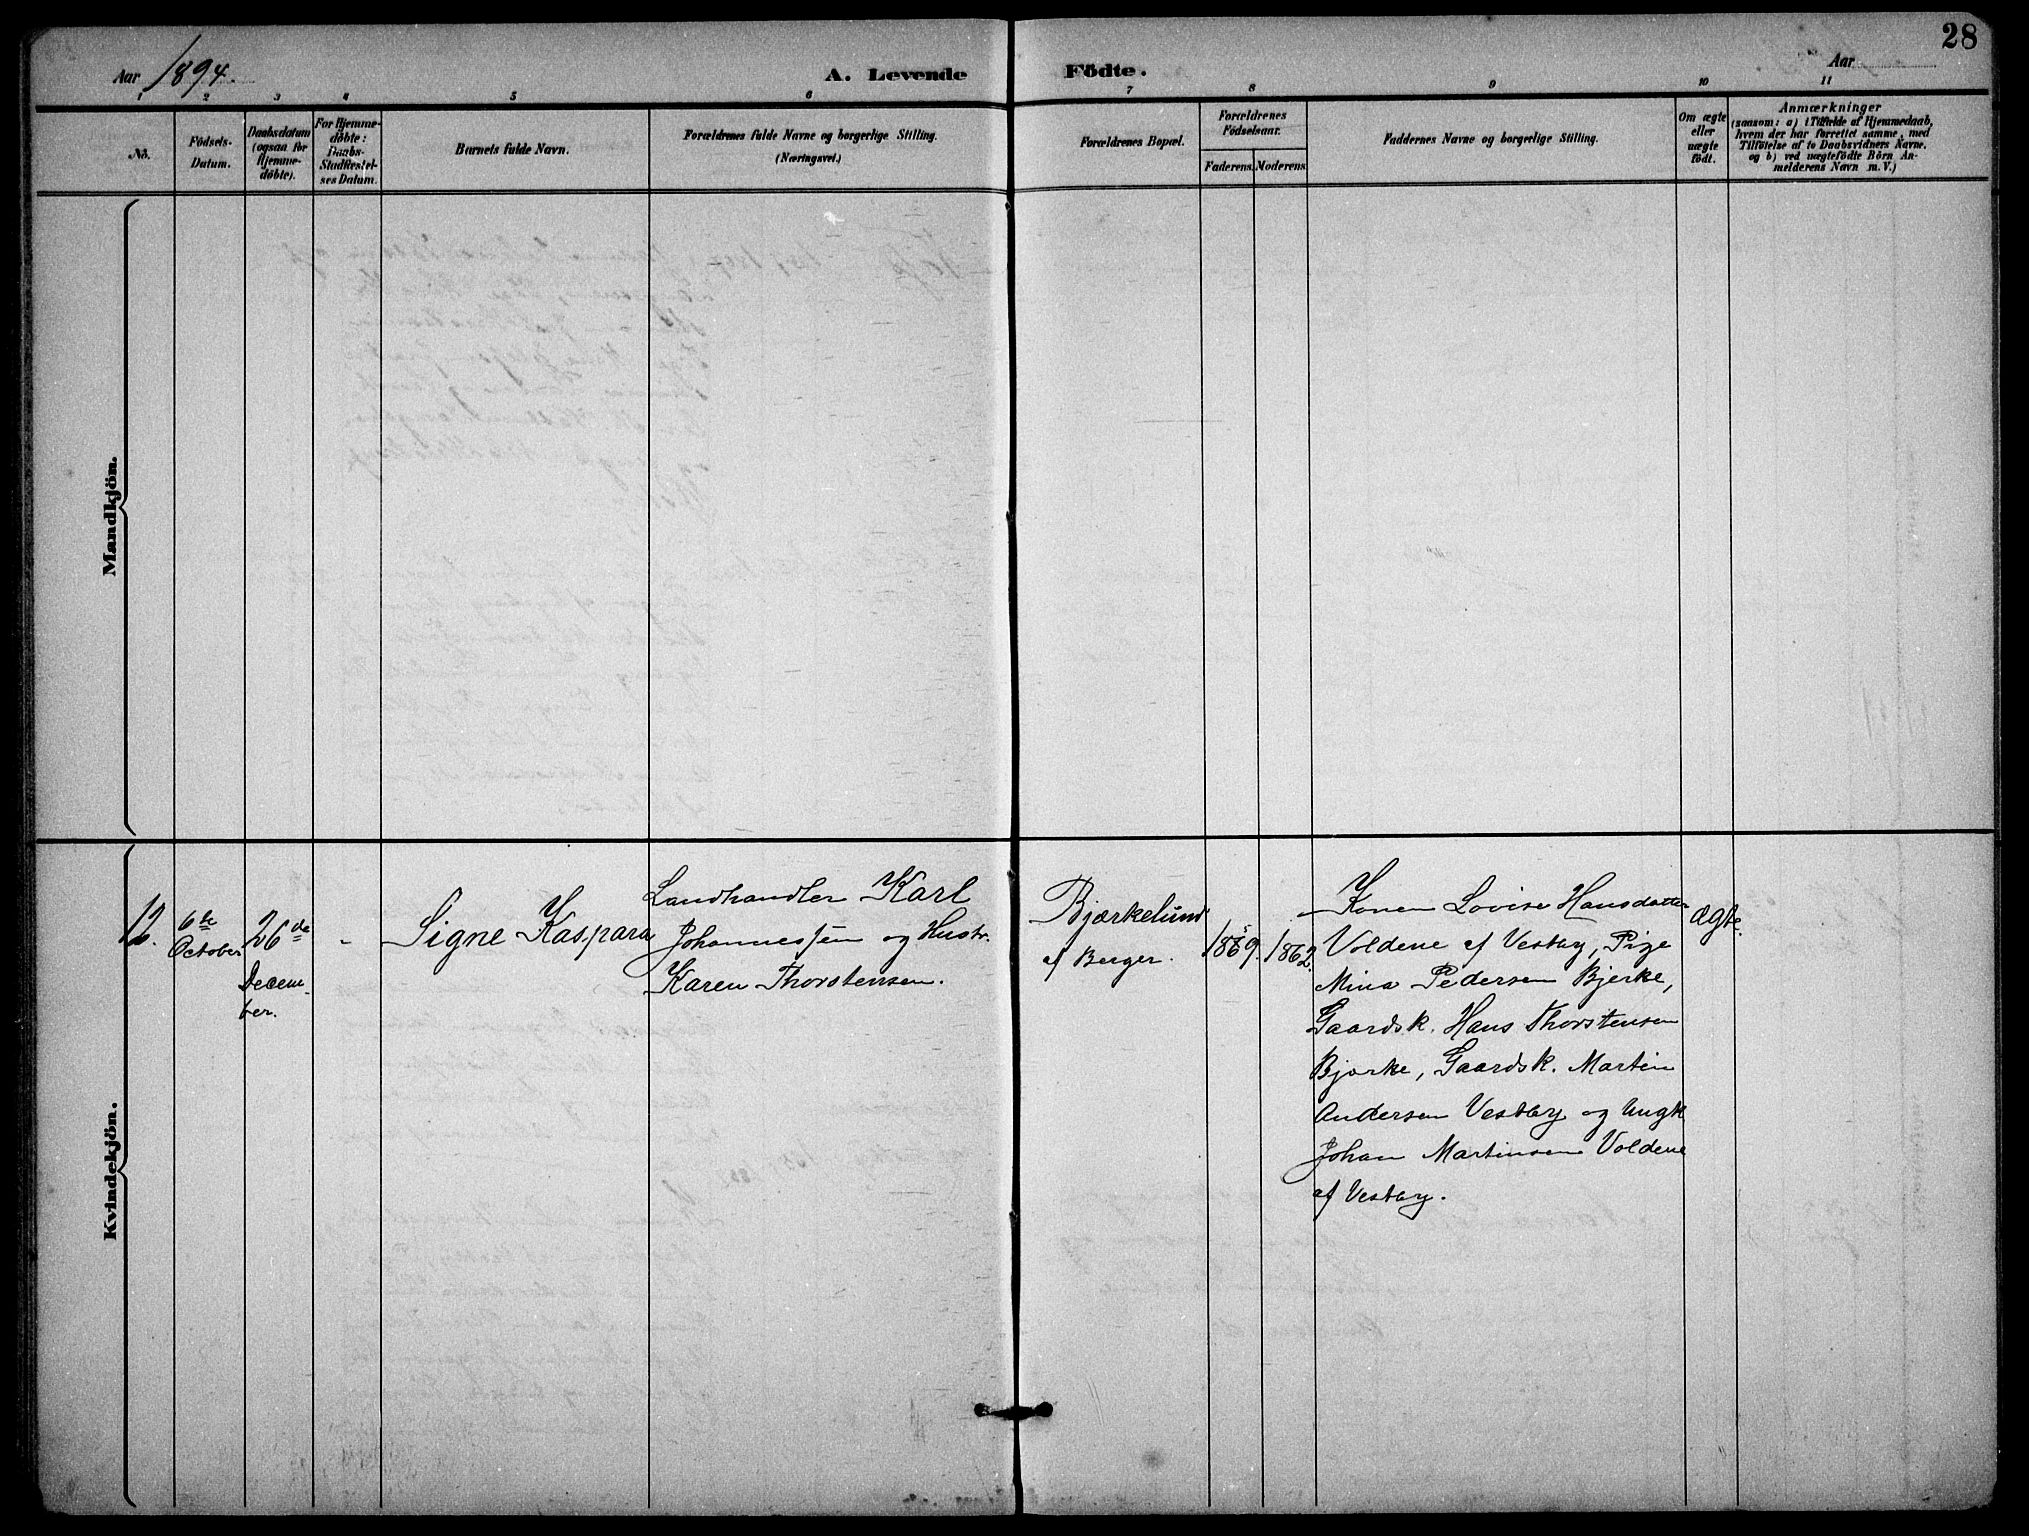 28
Aar 1894.
A. Levende Födte.
Aar
1 2 3 4 5 6 7 8 9 10 11
No.
Födsels-
Datum.
Daabsdatum
(ogsaa for
Hjemme-
döbte).
For Hjemme-
döbte:
Daabs-
Stadfæstel-
ses Datum.
Barnets fulde Navn.
Forældrenes fulde Navne og borgerlige Stilling.
(Næringsvei.)
Forældrenes Bopæl.
Forældrenes
Födselsaar.
Faderens. Moderens.
Faddernes Navne og borgerlige Stilling.
Om ægte
eller
uægte
födt.
Anmærkninger
(saasom: a) i Tilfælde af Hjemmedaab,
hvem der har forrettet samme, med
Tilföielse af to Daabsvidners Navne.
og b) ved uægtefödte Börn An-
melderens Navn m. V.)
Mandkjön.
Kvindekjön.
12.
6te
October
26de
Decem-
ber.
-
Signe Kaspara
Landhandler Karl
Johannessen og Hustr.
Karen Thorstensen.
Bjærkelund
af Berger.
1869.
1862.
Konen Lovise Hansdatter
Voldene af Vestby, Pige
Mina Pedersen Bjerke,
Gaardsk. Hans Thorstensen
Bjørke, Gaardsk. Martin
Andersen Vestby og Ungk
Johan Martinsen Voldene
af Vestby.
ægte.